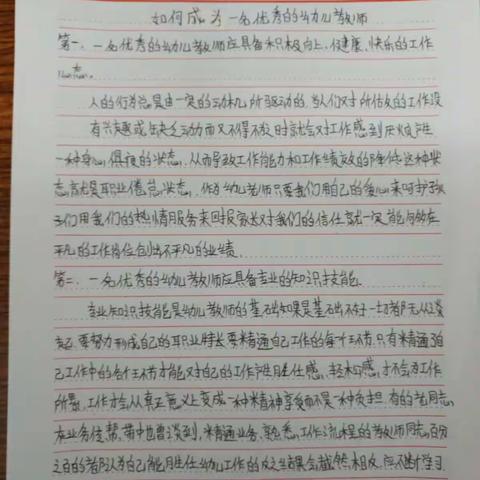 如何成为一名优秀的幼儿教师
第一、一名优秀的幼儿教师应具备积极向上、健康、快乐的工作
态
人的行为总是由一定的动机所驱动的,当人们对所估的工作没
有兴趣或缺乏动力而又不得不做时就会对工作感到厌烦产生
一种身心俱疲的状态,从而导致工作能力和工作绩效的降低,这种状
态就是职业倦怠状态,作为幼儿老师只要我们用自己的爱心来呵护孩
子们用我们的热情服务来回报家长对我们的信任就一定能够在
平凡的工作岗位创出不平凡的业绩.
第二、一名优秀的幼儿教师应具备专业的知识技能.
专业知识技能是幼儿教师的基础如果是基础不好一切都无从谈
起,要努力形成自己的职业特长要精通自己工作的每个环节,只有精通自
己工作中的各个环节才能对自己的工作产生胜任感、轻松感,才不会为工作
所累,工作才会从真正意义上变成一种精神享受而不是一种负担.有的老同志
在业务传帮带中也曾谈到,精通业务、熟悉工作流程的教师同志,百分
之百的都认为自己能胜任幼儿工作的反之结果会截然相反,应不断学习